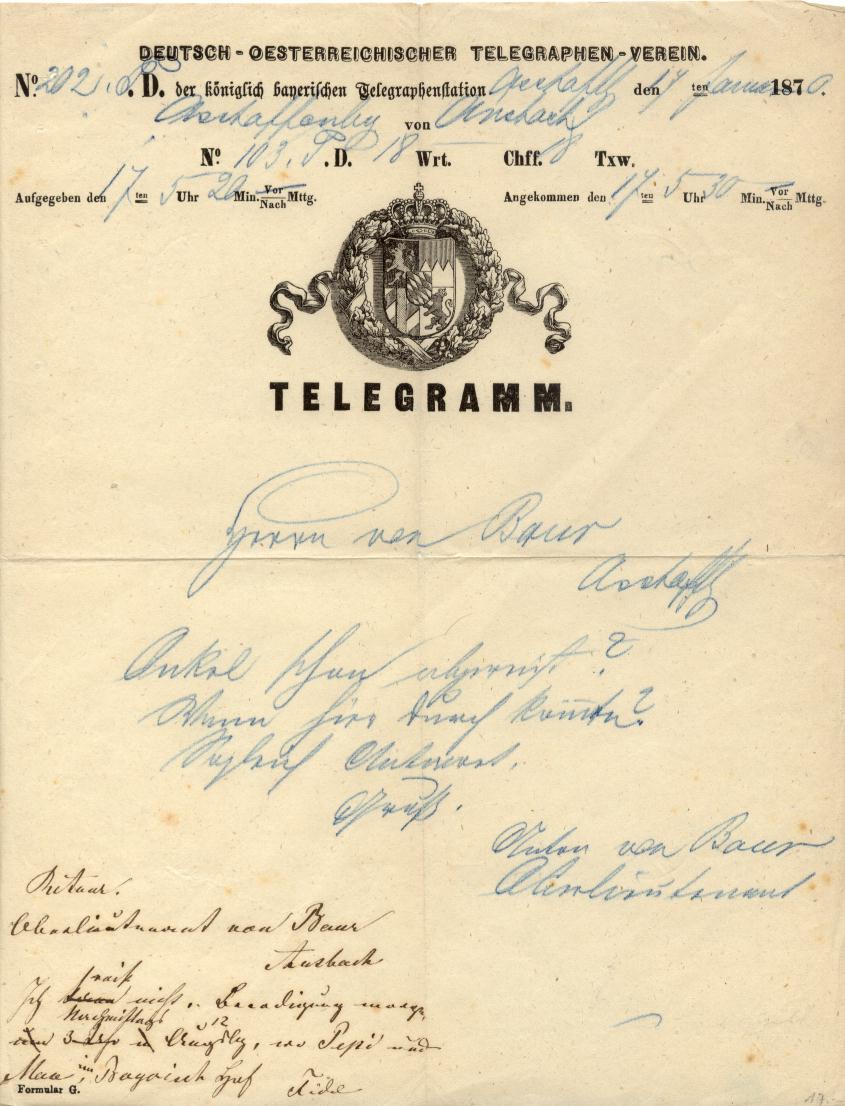 DEUTSCH-OESTERREICHISCHER TELEGRAPHEN-VEREIN.
No. 202. D. der königlich bayerischen Telegraphenstation Aschaffbg den 17 ten Januar 1870.
Aschaffenburg von Ansbach
No. 103. D. 18 Wrt. Chff. 18 Txw.
Aufgegeben den 17 ten 5 Uhr 20 Min. Vor/Nach Mttg. Angekommen den 17 ten 5 Uhr 30 Min. Vor/Nach Mttg.
TELEGRAMM.
Herrn von Baur
Aschaffbg
Onkel schon abgereist?
Wann hier durch kommen?
Sogleich Antwort.
Gruß.
Anton von Baur
Oberlieutenant
Retour.
Oberlieutenant von Baur
Ansbach
reise
Ich nicht. Beerdigung morgen
Nachmittags
3 Uhr 12
Augsbg, wo Pepi und
Max im Bayrisch Hof
Formular G.